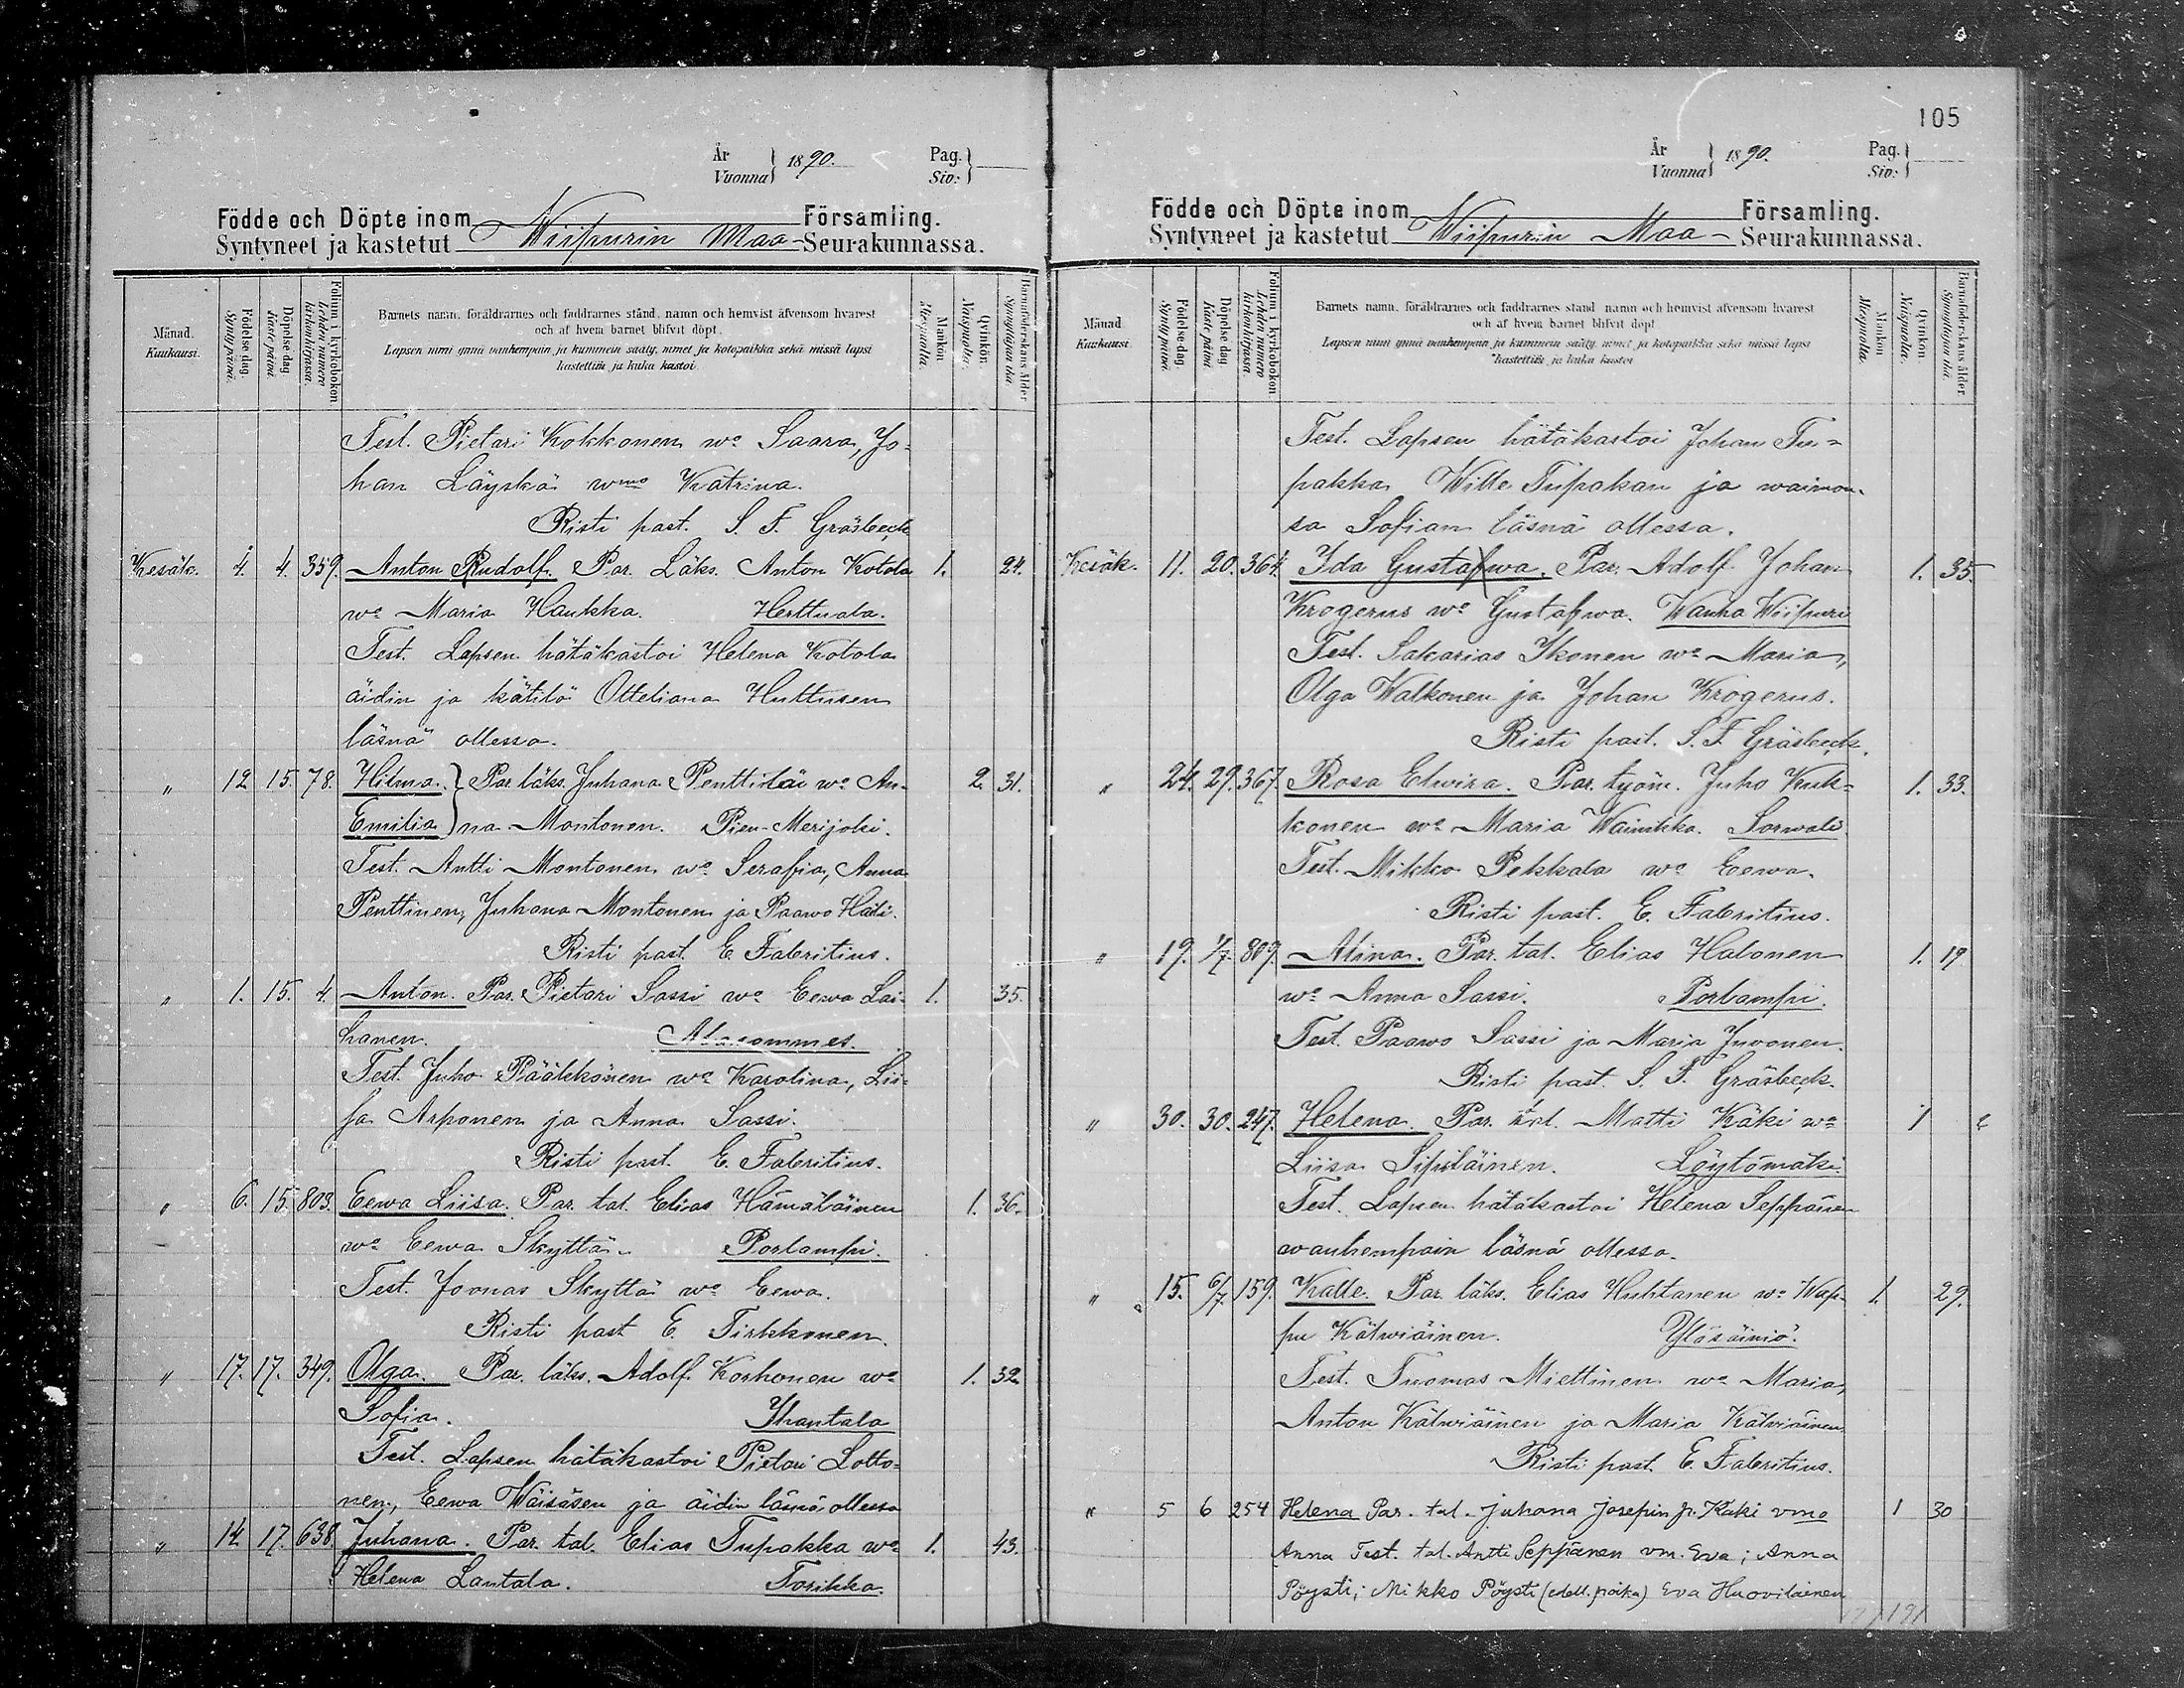 År
Vuonna
1890.
Pag.
Siv:
Födde och Döpte inom
Syntyneet ja kastetut
Wiipurin Maa-
Församling.
Seurakunnassa.
Månad.
Kuukausi.
Födelse dag.
Synty päivä.
Döpelse dag
Kaste päivä.
Folium i kyrkobokon
Lehden numero kirkonkirjassa.
Barnets namn, föräldrarnes och faddrarnes stånd, namn och hemvist äfvensom hvarest
och af hvem barnet blifvit döpt.
Lapsen nimi ynnä vanhempain ja kummein sääty, nimet ja kotopaikka sekä missä lapsi
kastettiin ja kuka kastoi.
Mankön.
Miespuolta.
Qvinkön.
Naispuolta.
Barnaföderskans ålder
Synnyttäjän ikä.
Test. Pietari Kokkonen wo Saara, Jo-
han Läyskä wmo Katrina.
Risti past. S. F. Gräsbeck
Kesäk. 4. 4. 359. Anton Rudolf. Par. Läks. Anton Kotola 1. 24.
wo Maria Haukka. Herttuala.
Test. Lapsen hätäkastoi Helena Kotola
äidin ja kätilö Otteliana Huttusen
läsnä ollessa.
" 12 15. 78. Hilma. } Par. läks. Juhana Penttilä wo An- 2. 31.
Emilia } na Montonen. Pien-Merijoki.
Test. Antti Montonen wo Serafia, Anna
Penttinen, Juhana Montonen ja Paawo Häti.
Risti past. E. Fabritius.
" 1. 15. 4. Anton. Par. Pietari Sassi wo Eewa Lai- 1. 35.
hanen. Alasommes.
Test. Juho Pääkkönen wo Karolina, Lii-
sa Arponen ja Anna Sassi.
Risti past. E. Fabritius.
" 6. 15. 803. Eewa Liisa. Par. tal. Elias Hämäläinen 1. 36.
wo Eewa Skyttä. Porlampi.
Test. Joonas Skyttä wo Eewa.
Risti past E. Tirkkonen.
" 17. 17. 349. Olga. Par. läks. Adolf Korhonen wo 1. 32
Sofia. Ihantala
Test. Lapsen hätäkastoi Pietari Lotto-
nen, Eewa Wäisäsen ja äidin läsnä ollessa
" 14 17. 638. Juhana. Par. tal. Elias Tupakka wo 1. 43.
Helena Lantala. Torikka.
105
År
Vuonna
1890.
Pag.
Siv:
Födde och Döpte inom
Syntyneet ja kastetut
Wiipurin Maa-
Församling.
Seurakunnassa.
Månad
Kuukausi.
Födelse dag
Synty päivä.
Döpelse dag
Kaste päivä
Folium i kyrkobokon
Lehden numero kirkonkirjassa.
Barnets namn, föräldrarnes och faddrarnes stånd namn och hemvist äfvensom hvarest
och af hvem barnet blifvit döpt
Lapsen nimi ynnä vanhempain ja kummein sääty, nimet ja kotopaikka sekä missä lapsi
kastettiin ja kuka kastoi
Mankön
Miespuolta.
Qvinkön
Naispuolta.
Barnaföderskans ålder
Synnyttäjän ikä.
Test. Lapsen hätäkastoi Johan Tu-
pakka Wille Tupakan ja waimon-
sa Sofian läsnä ollessa.
Kesäk. 11. 20. 364. Ida Gustafwa. Par. Adolf Johan 1. 35
Krogerus wo Gustafwa. Wanha Wiipuri
Test. Sakarias Ikonen wo Maria,
Olga Walkonen ja Johan Krogerus.
Risti past. S. F. Gräsbeck.
" 24. 29. 367. Rosa Elwira. Par. työm. Juho Kuk- 1. 33.
konen wo Maria Wainikka. Sorwali
Test. Mikko Pekkala wo Eewa.
Risti past. E. Fabritius.
" 19. 1/7. 809. Alina. Par. tal. Elias Halonen 1. 19
wo Anna Sassi. Porlampi.
Test. Paawo Sassi ja Maria Juvonen.
Risti past. S. F. Gräsbeck.
" 30. 30. 247. Helena. Par. tal. Matti Käki wo 1
Liisa Sipiläinen. Löytömäki.
Test. Lapsen hätäkastoi Helena Seppänen
wanhempain läsnä ollessa.
" 15. 6/7. 159. Kalle. Par. läks. Elias Huhtanen wo Wap- 1. 29.
pu Kälwiäinen. Yläsäiniö.
Test. Tuomas Miettinen wo Maria,
Anton Kälwiäinen ja Maria Kälwiäinen
Risti past. E. Fabritius.
" 5 6 254 Helena Par. tal. Juhana Josepin p. Käki vmo 1 30
Anna Test. tal. Antti Seppänen vm. Eva; Anna
Pöysti; Mikko Pöysti (edell. poika) Eva Huovilainen